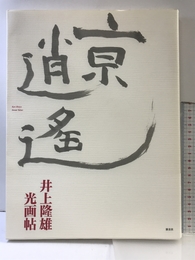 京
逍遥
井上隆雄
光画帖